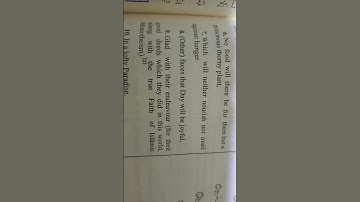 6. No food will there be for them but a
poisonous thorny plant,
7. Which will neither nourish nor avail
against hunger.
8. (Other) faces that Day will be joyful,
9. Glad with their endeavour (for their
good deeds which they did in this world,
along with the true Faith of Islâmic
Monotheism).
10. In a lofty Paradise.